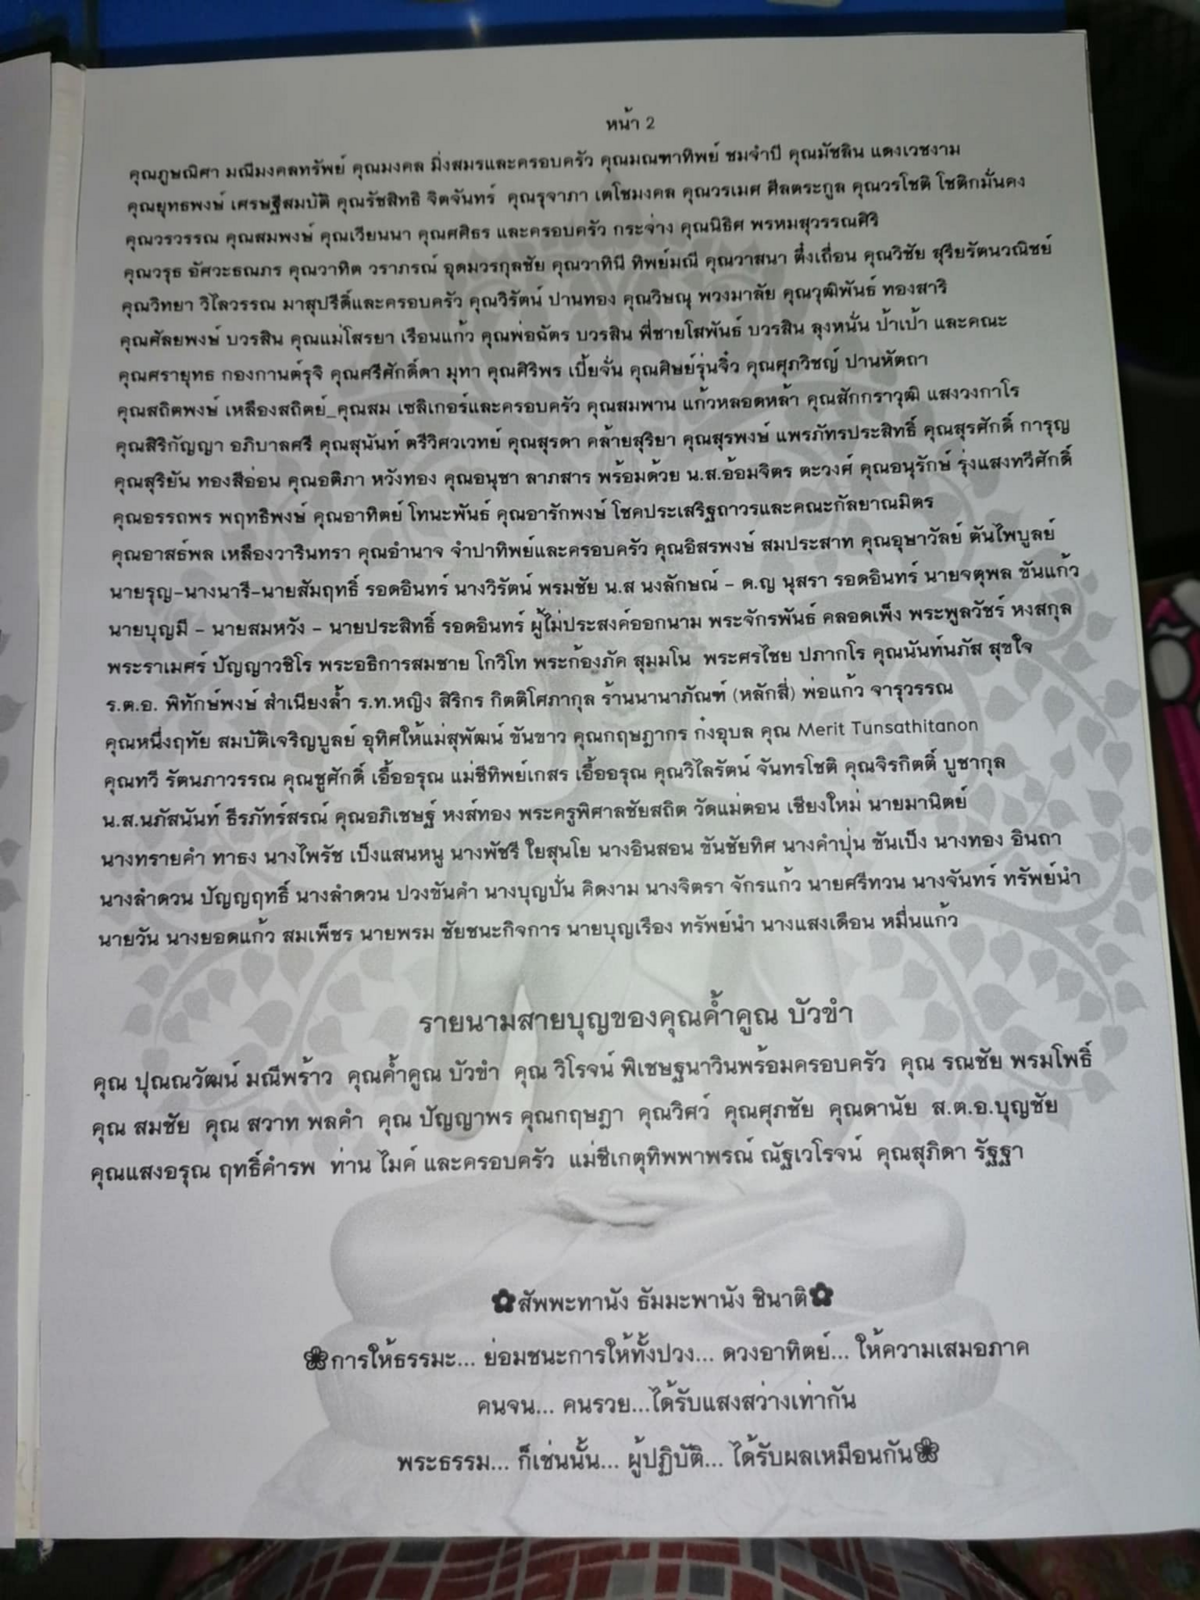 หน้า 2
คุณภูษณิศา มณีมงคลทรัพย์ คุณมงคล มิ่งสมรและครอบครัว คุณมณฑาทิพย์ ชมจำปี คุณมัชลิน แดงเวชงาม
คุณยุทธพงษ์ เศรษฐีสมบัติ คุณรัชสิทธิ จิตจันทร์ คุณรุจาภา เตโชมงคล คุณวรเมศ ศีลตระกูล คุณวรโชติ โชติกมั่นคง
คุณวรวรรณ คุณสมพงษ์ คุณเวียนนา คุณศศิธร และครอบครัว กระจ่าง คุณนิธิศ พรหมสุวรรณศิริ
คุณวรุธ อัศวะธณภร คุณวาทิต วราภรณ์ อุดมวรกุลชัย คุณวาทินี ทิพย์มณี คุณวาสนา ตึ๋งเถื่อน คุณวิชัย สุริยรัตนวณิชย์
คุณวิทยา วิไลวรรณ มาสุปรีดิ์และครอบครัว คุณวิรัตน์ ปานทอง คุณวิษณุ พวงมาลัย คุณวุฒิพันธ์ ทองสาริ
คุณศัลยพงษ์ บวรสิน คุณแม่โสรยา เรือนแก้ว คุณพ่อฉัตร บวรสิน พี่ชายโสพันธ์ บวรสิน ลุงหนั่น ป้าเป้า และคณะ
คุณศรายุทธ กองกานต์รุจิ คุณศรีศักดิ์ดา มุทา คุณศิริพร เบี้ยจั่น คุณศิษย์รุ่นจิ๋ว คุณศุภวิชญ์ ปานหัตถา
คุณสถิตพงษ์ เหลืองสถิตย์_คุณสม เซลิเกอร์และครอบครัว คุณสมพาน แก้วหลอดหล้า คุณสักกราวุฒิ แสงวงกาโร
คุณสิริกัญญา อภิบาลศรี คุณสุนันท์ ตรีวิศวเวทย์ คุณสุรดา คล้ายสุริยา คุณสุรพงษ์ แพรภัทรประสิทธิ์ คุณสุรศักดิ์ การุญ
คุณสุริยัน ทองสีอ่อน คุณอติภา หวังทอง คุณอนุชา ลาภสาร พร้อมด้วย น.ส.อ้อมจิตร ตะวงศ์ คุณอนุรักษ์ รุ่งแสงทวีศักดิ์
คุณอรรถพร พฤทธิพงษ์ คุณอาทิตย์ โทนะพันธ์ คุณอารักพงษ์ โชคประเสริฐถาวรและคณะกัลยาณมิตร
คุณอาสธ์พล เหลืองวารินทรา คุณอำนาจ จำปาทิพย์และครอบครัว คุณอิสรพงษ์ สมประสาท คุณอุษาวัลย์ ตันไพบูลย์
นายรุญ-นางนารี-นายสัมฤทธิ์ รอดอินทร์ นางวิรัตน์ พรมชัย น.ส นงลักษณ์ – ด.ญ นุสรา รอดอินทร์ นายจตุพล ขันแก้ว
นายบุญมี – นายสมหวัง – นายประสิทธิ์ รอดอินทร์ ผู้ไม่ประสงค์ออกนาม พระจักรพันธ์ คลอดเพ็ง พระพูลวัชร์ หงสกุล
พระราเมศร์ ปัญญาวชิโร พระอธิการสมชาย โกวิโท พระก้องภัค สุมมโน พระศรไชย ปภากโร คุณนันท์นภัส สุขใจ
ร.ต.อ. พิทักษ์พงษ์ สำเนียงล้ำ ร.ท.หญิง สิริกร กิตติโศภากุล ร้านนานาภัณฑ์ (หลักสี่) พ่อแก้ว จารุวรรณ
คุณหนึ่งฤทัย สมบัติเจริญบูลย์ อุทิศให้แม่สุพัฒน์ ขันขาว คุณกฤษฎากร ก๋งอุบล คุณ Merit Tunsathitanon
คุณทวี รัตนภาวรรณ คุณชูศักดิ์ เอื้ออรุณ แม่ชีทิพย์เกสร เอื้ออรุณ คุณวิไลรัตน์ จันทรโชติ คุณจิรกิตติ์ บูชากุล
น.ส.นภัสนันท์ ธีรภัทร์สรณ์ คุณอภิเชษฐ์ หงส์ทอง พระครูพิศาลชัยสถิต วัดแม่ตอน เชียงใหม่ นายมานิตย์
นางทรายคำ ทาธง นางไพรัช เป็งแสนหนู นางพัชรี ใยสุนโย นางอินสอน ขันชัยทิศ นางคำปุ่น ขันเป็ง นางทอง อินถา
นางลำดวน ปัญญฤทธิ์ นางลำดวน ปวงขันคำ นางบุญปั่น คิดงาม นางจิตรา จักรแก้ว นายศรีทวน นางจันทร์ ทรัพย์นำ
นายวัน นางยอดแก้ว สมเพ็ชร นายพรม ชัยชนะกิจการ นายบุญเรือง ทรัพย์นำ นางแสงเดือน หมื่นแก้ว
รายนามสายบุญของคุณค้ำคูณ บัวขำ
คุณ ปุณณวัฒน์ มณีพร้าว คุณค้ำคูณ บัวขำ คุณ วิโรจน์ พิเชษฐนาวินพร้อมครอบครัว คุณ รณชัย พรมโพธิ์
คุณ สมชัย คุณ สวาท พลคำ คุณ ปัญญาพร คุณกฤษฎา คุณวิศว์ คุณศุภชัย คุณดานัย ส.ต.อ.บุญชัย
คุณแสงอรุณ ฤทธิ์คำรพ ท่าน ไมค์ และครอบครัว แม่ชีเกตุทิพพาพรณ์ ณัฐเวโรจน์ คุณสุภิดา รัฐฐา
✿สัพพะทานัง ธัมมะพานัง ชินาติ✿
❀การให้ธรรมะ... ย่อมชนะการให้ทั้งปวง... ดวงอาทิตย์... ให้ความเสมอภาค
คนจน... คนรวย...ได้รับแสงสว่างเท่ากัน
พระธรรม... ก็เช่นนั้น... ผู้ปฏิบัติ... ได้รับผลเหมือนกัน❀